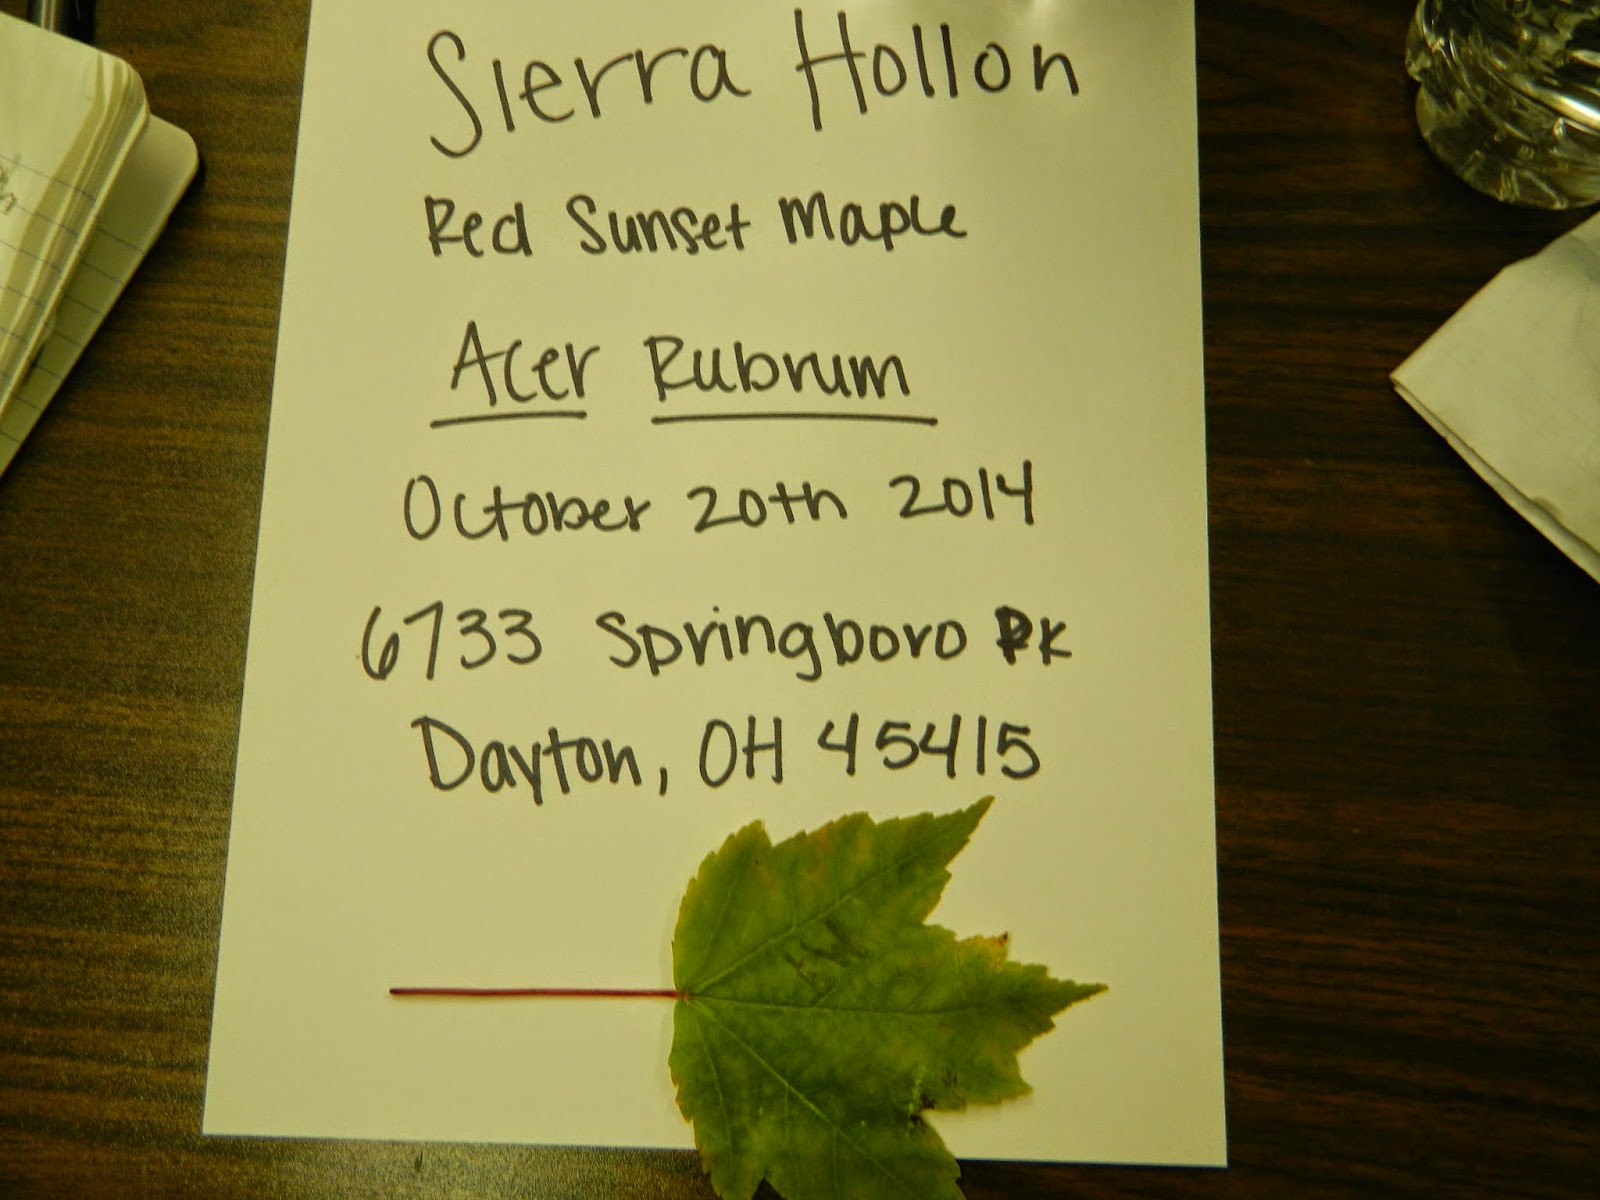 Sierra Hollon
Red Sunset Maple
Acer Rubrum
October 20th 2014
6733 Springboro PK
Dayton, OH 45415